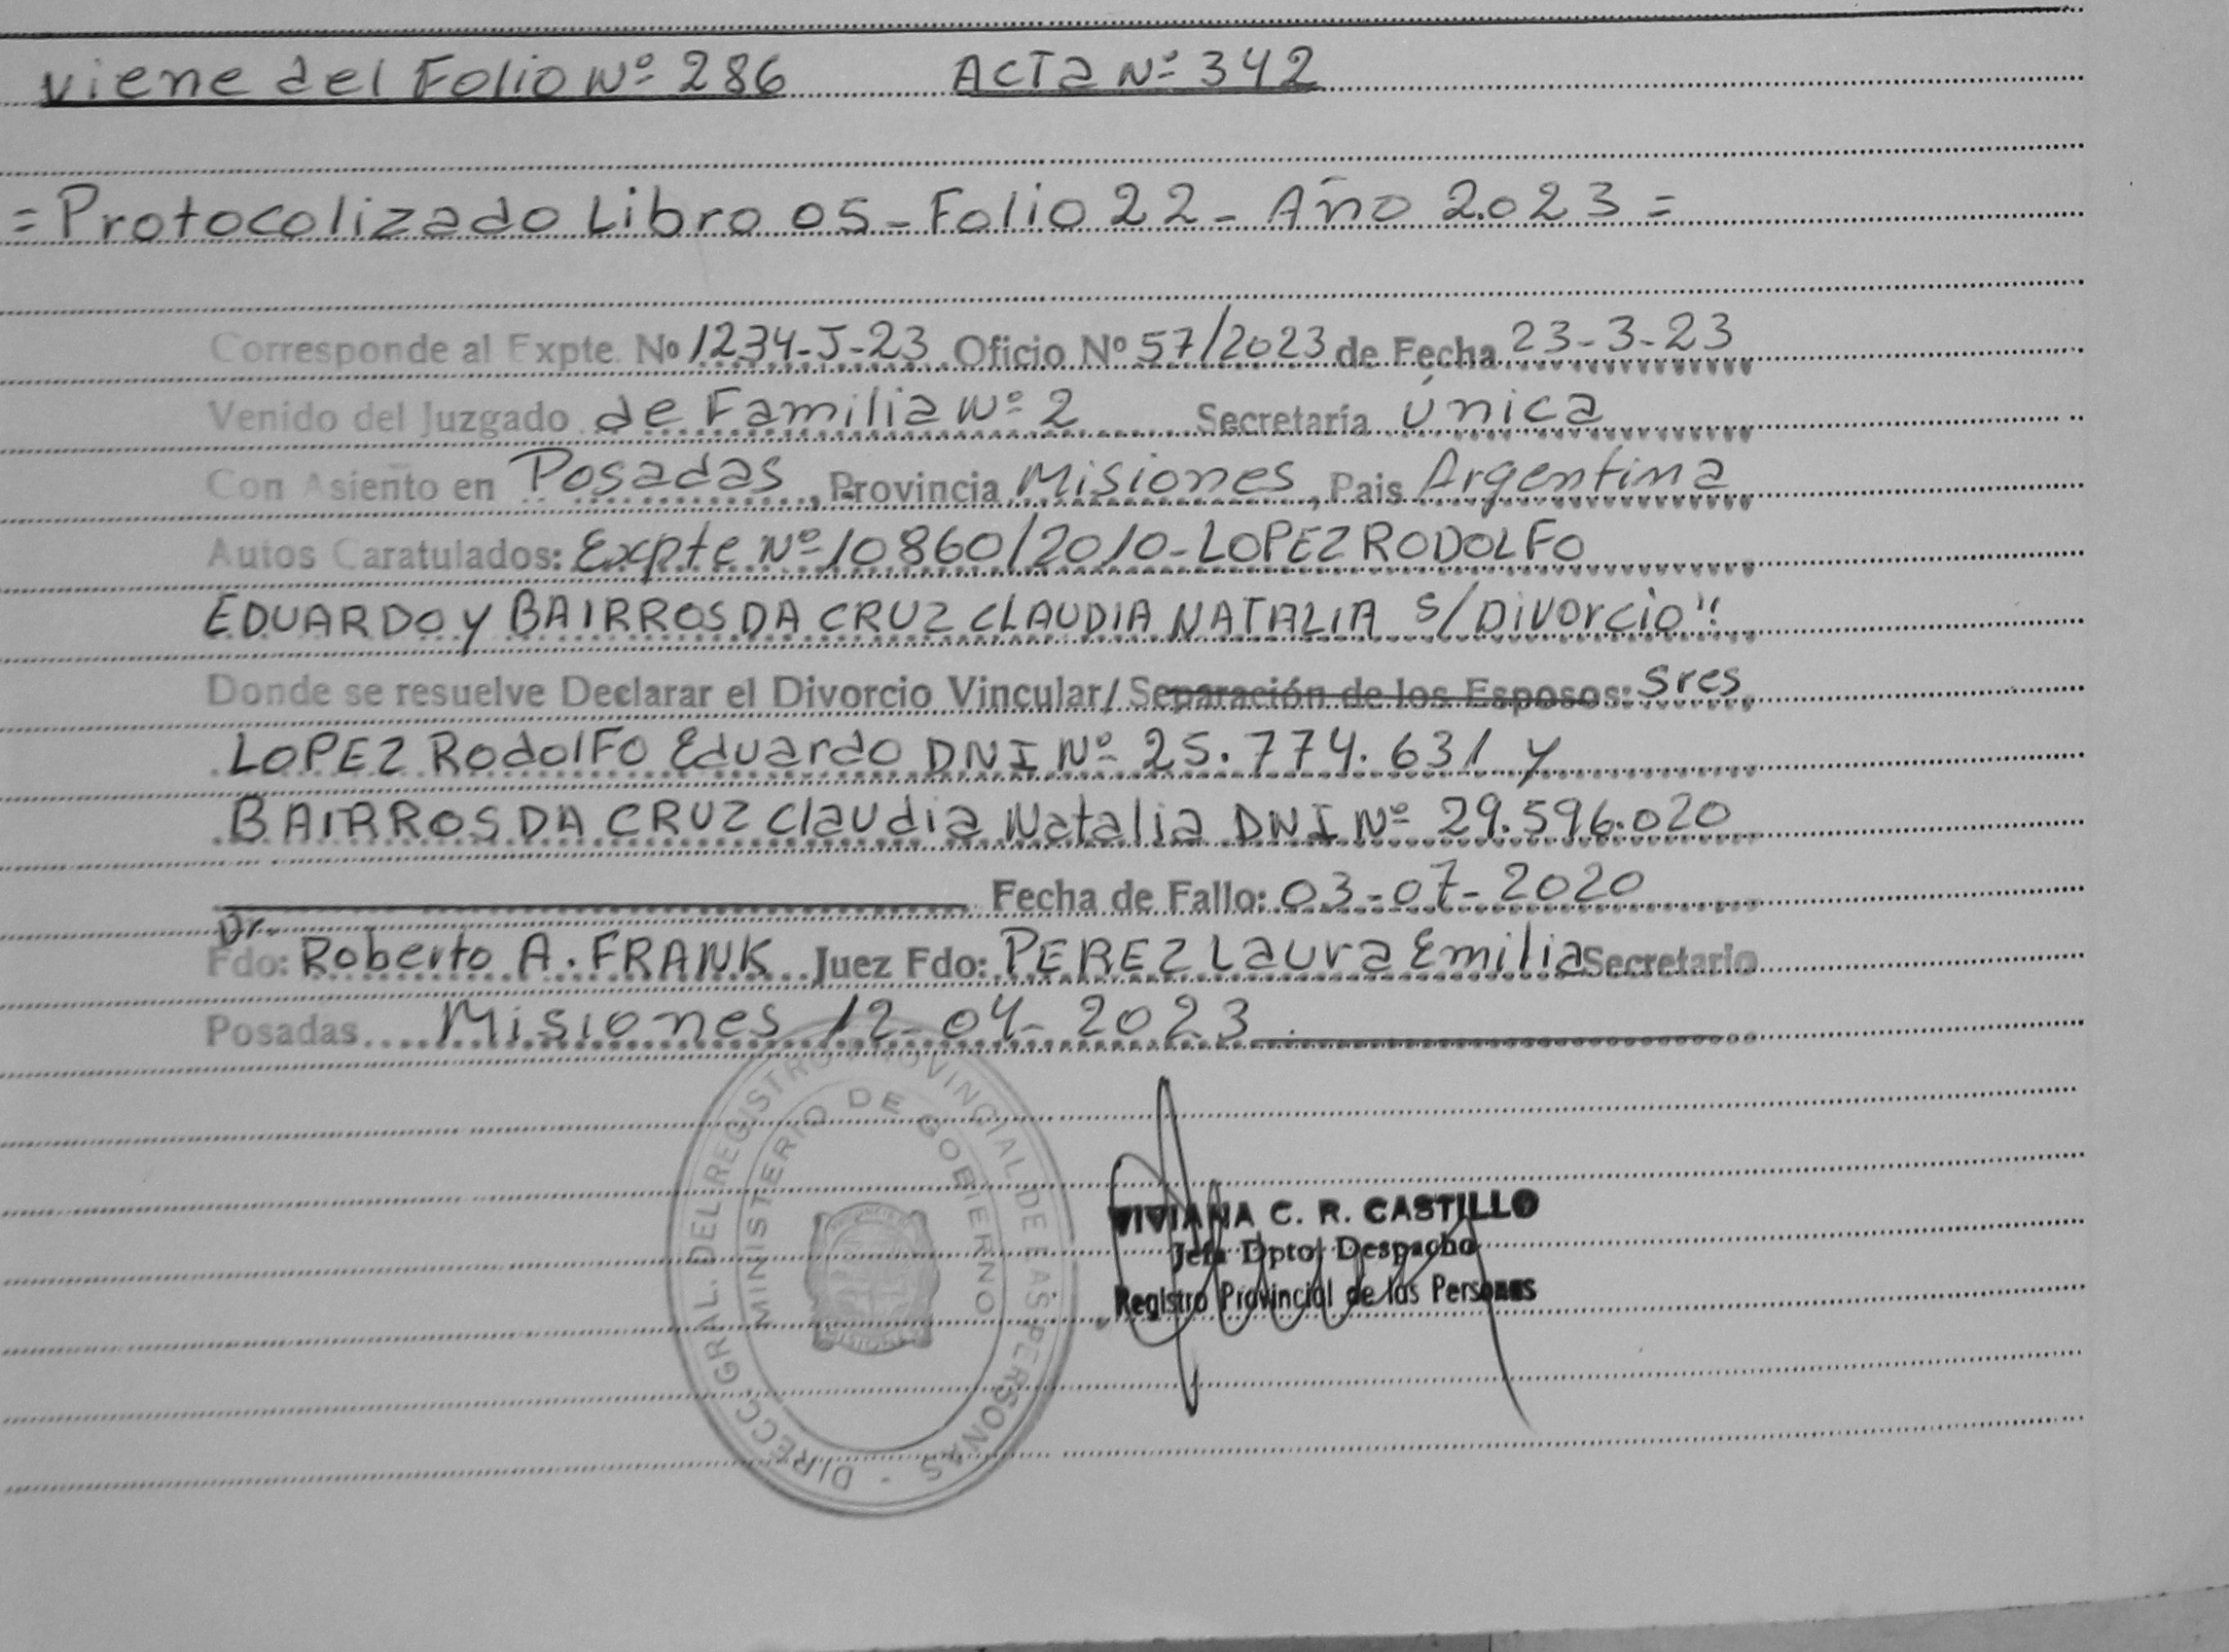 viene del Folio Nº 286 ACTA Nº 342
= Protocolizado Libro 05 - Folio 22 - Año 2.023 =
Corresponde al Expte. No 1234-J-23 Oficio Nº 57/2023 de Fecha 23-3-23
Venido del Juzgado de Familia Nº 2 Secretaría única
Con Asiento en Posadas, Provincia Misiones, Pais Argentina
Autos Caratulados: Expte Nº 10860/2010 - LOPEZ RODOLFO
EDUARDO y BAIRROS DA CRUZ CLAUDIA NATALIA s/Divorcio".
Donde se resuelve Declarar el Divorcio Vincular/ Separación de los Esposos: Sres
LOPEZ Rodolfo Eduardo DNI Nº 25.774.631 y
BAIRROS DA CRUZ Claudia Natalia DNI Nº 29.596.020
Fecha de Fallo: 03-07-2020
Dr.
Fdo: Roberto A. FRANK Juez Fdo: PEREZ Laura Emilia Secretario
Posadas Misiones 12-04-2023
DIRECC. GRAL. DEL REGISTRO PROVINCIAL DE LAS PERSONAS -
MINISTERIO DE GOBIERNO
VIVIANA C. R. CASTILLO
Jefa Dpto. Despacho
Registro Provincial de las Personas